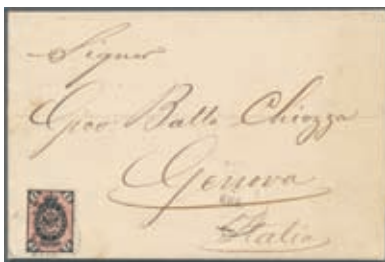 Signor
Gio Batta Chiozza
Genova
Italia